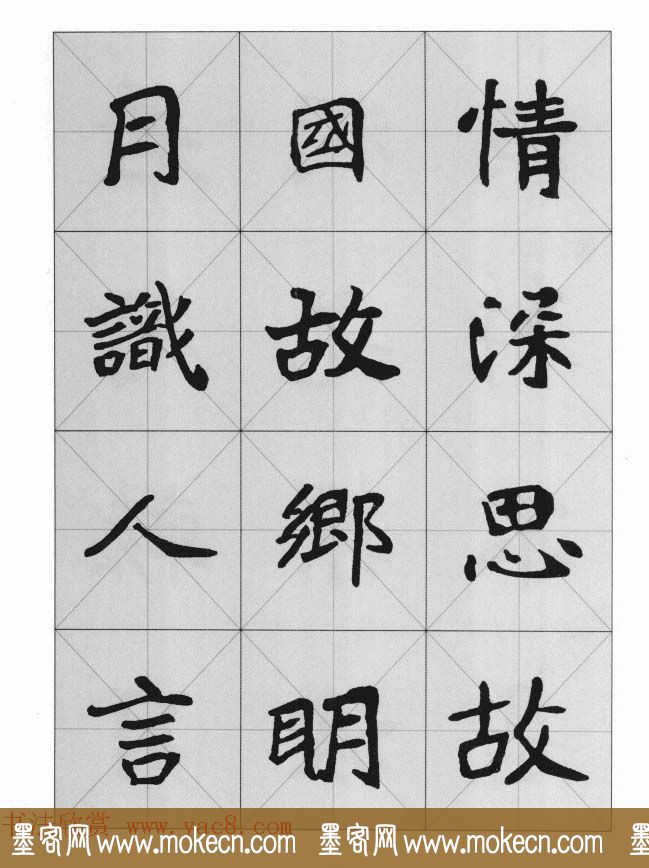 情深思故
國故鄉明
月識人言
书法欣赏 www.yac8.com
墨客网 www.mokecn.com 墨客网 www.mokecn.com